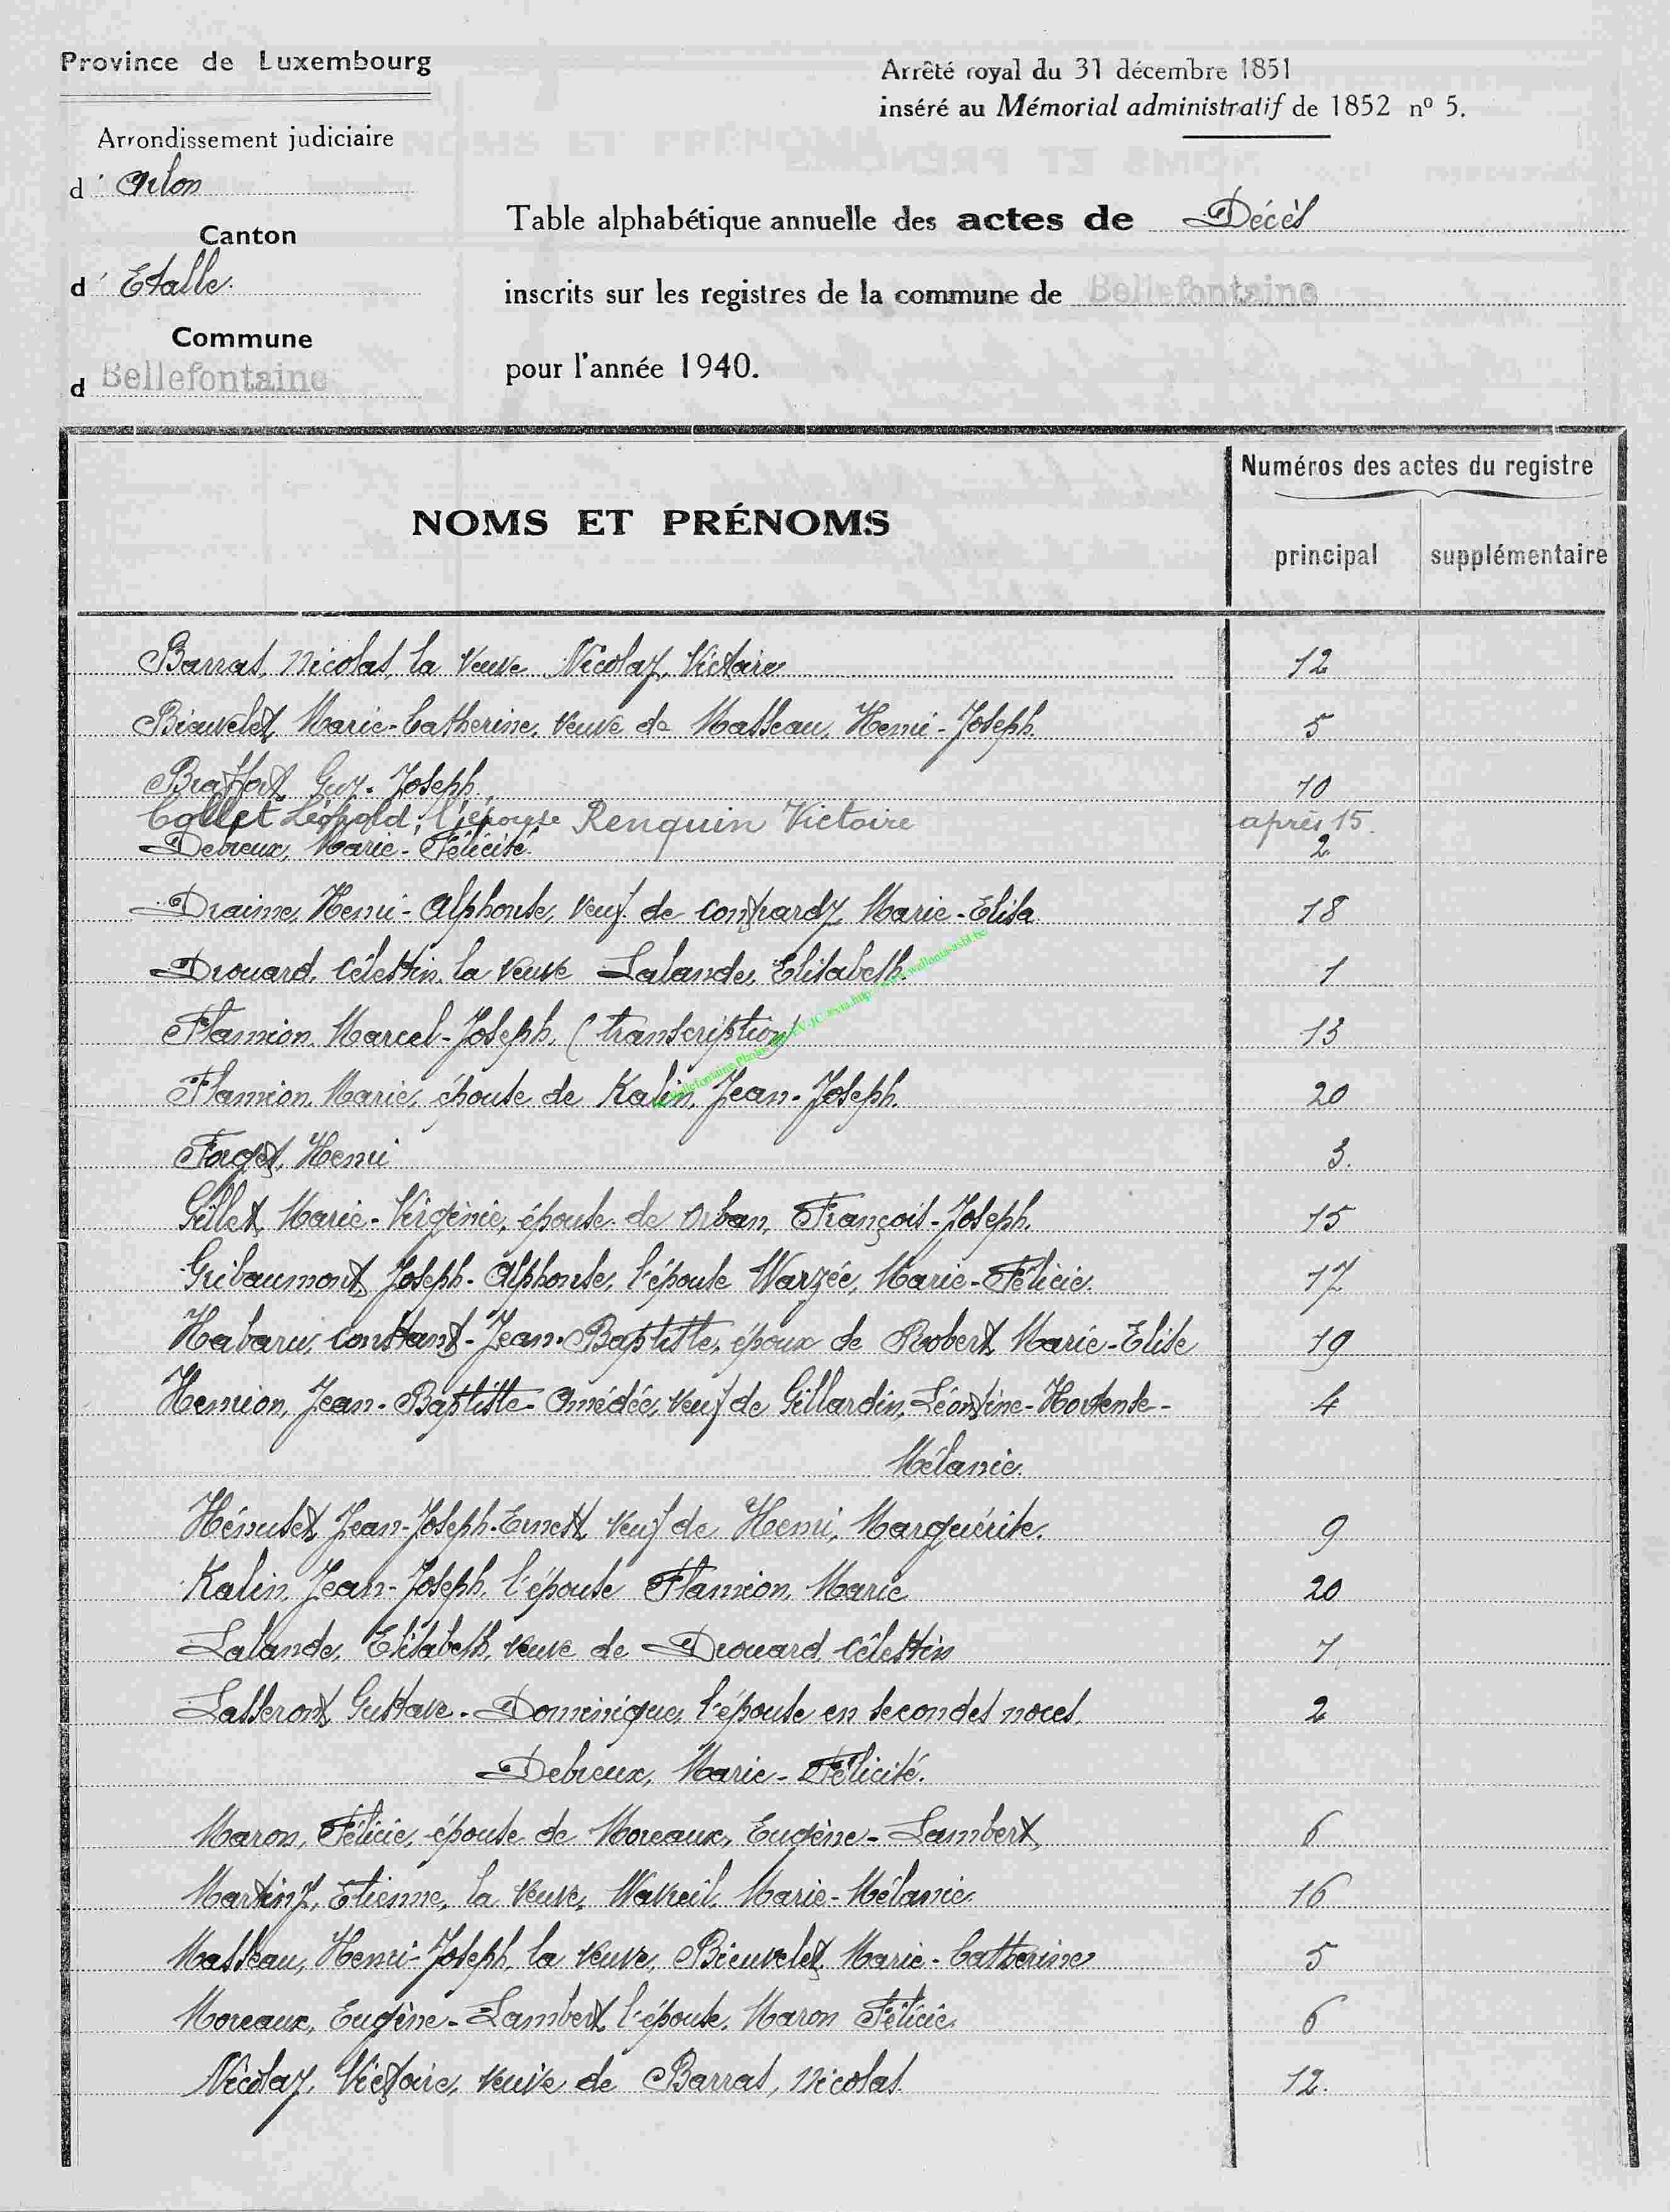 Province de Luxembourg
Arrêté royal du 31 décembre 1851
inséré au Mémorial administratif de 1852 nº 5.
Arrondissement judiciaire
d' Arlon
Canton
d' Etalle.
Commune
d Bellefontaine
Table alphabétique annuelle des actes de Décès
inscrits sur les registres de la commune de Bellefontaine
pour l'année 1940.
NOMS ET PRÉNOMS
Numéros des actes du registre
principal supplémentaire
Barras, Nicolas, la veuve Nicolay, Victoire 12
Bieuvelet, Marie-Catherine, veuve de Masseau, Henri-Joseph. 5
Braffort, Guy-Joseph. 10
Collet Léopold; l'épouse Renquin Victoire après 15.
Debreux, Marie-Félicité. 2
Draime, Henri-Alphonse, veuf de Conrardy, Marie-Elisa. 18
Drouard, Célestin, la veuve Lalande, Elisabeth. 1
Flamion, Marcel-Joseph. (transcription) 13
Flamion, Marie, épouse de Kalin, Jean-Joseph. 20
Forget, Henri 3.
Gillet, Marie-Virginie, épouse de Orban, François-Joseph. 15
Gribaumont, Joseph-Alphonse, l'épouse Warzée, Marie-Félicie. 17
Habaru, Constant-Jean-Baptiste, époux de Robert, Marie-Elise 19
Henrion, Jean-Baptiste-Amédée, veuf de Gillardin, Léontine-Hortense- 4
Mélanie.
Hénuset, Jean-Joseph-Ernest, veuf de Henri, Marguérite. 9
Kalin, Jean-Joseph, l'épouse Flamion, Marie 20
Lalande, Elisabeth, veuve de Drouard Célestin 1
Lasseront, Gustave-Dominique, l'épouse en secondes noces. 2
Debreux, Marie-Félicité.
Maron, Félicie, épouse de Moreaux, Eugène-Lambert, 6
Martiny, Etienne, la veuve, Wavreil, Marie-Mélanie. 16
Masseau, Henri-Joseph, la veuve, Bieuvelet, Marie-Catherine 5
Moreaux, Eugène-Lambert, l'épouse, Maron Félicie. 6
Nicolay, Victoire, veuve de Barras, Nicolas. 12.